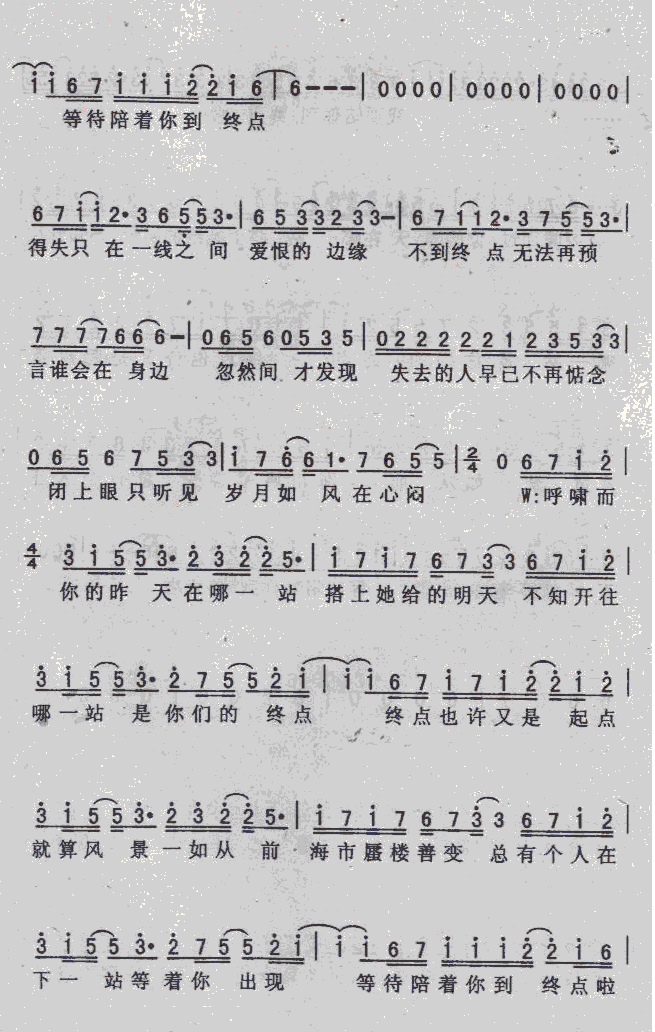 i i 6 7 i i i 2 2 i 6 | 6 - - - | 0 0 0 0 | 0 0 0 0 | 0 0 0 0 |
等待陪着你到 终点
6 7 i i 2• 3 6 5 5 3• | 6 5 3 3 2 3 3 - 6 7 1 1 2• 3 7 5 5 3• |
得失只 在一线之 间 爱恨的 边缘 不到终 点无法再预
7 7 7 7 6 6 6 - | 0 6 5 6 0 5 3 5 | 0 2 2 2 2 2 1 2 3 5 3 3 |
言谁会在 身边 忽然间 才发现 失去的人早已不再惦念
0 6 5 6 7 5 3 3 | i 7 6 6 1• 7 6 5 5 | 2/4 0 6 7 i 2
闭上眼只听见 岁月如 风在心闷 W:呼啸而
4/4 3 i 5 5 3• 2 3 2 2 5• | i 7 i 7 6 7 3 3 6 7 i 2 |
你的昨 天在哪一 站 搭上她给的明天 不知开往
3 i 5 5 3• 2 7 5 5 2 i | i i 6 7 i 7 i 2 2 i 2 |
哪一站 是你们的 终点 终点也许又是 起点
3 i 5 5 3• 2 3 2 2 5• | i 7 i 7 6 7 3 3 6 7 i 2 |
就算风 景一如从 前 海市蜃楼善变 总有个人在
3 i 5 5 3• 2 7 5 5 2 i | i i 6 7 i i i 2 2 i 6 |
下一 站等着你 出现 等待陪着你到 终点啦